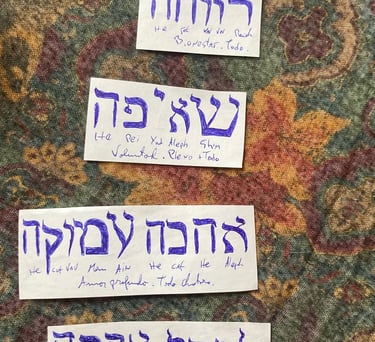 רווחה
He Vav Vav Resh
Bienestar. Todo.
שאיפה
He Pei Yod Aleph Shin
Voluntad. Plexo Todo
אהבה עמוקה
He Vav Mem Ain He caf He Aleph
Amor profundo. Todo